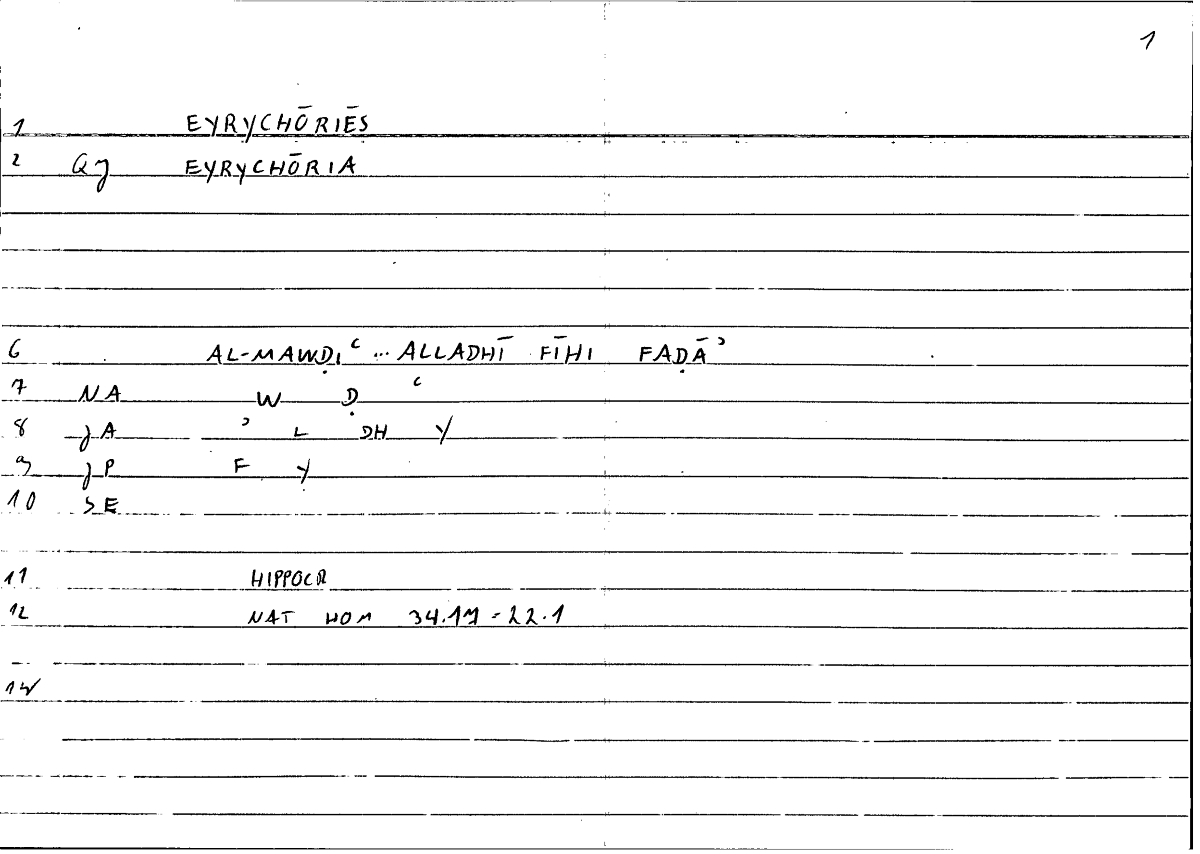 1
1 EYRYCHŌRIĒS
2 Qj EYRYCHŌRIA
6 AL-MAWḌIʿ ... ALLADHĪ FĪHI FAḌĀʾ
7 NA W Ḍ ʿ
8 jA ʾ L DH Y
9 jP F Y
10 SE
11 HIPPOCR
12 NAT HOM 34.17-22.1